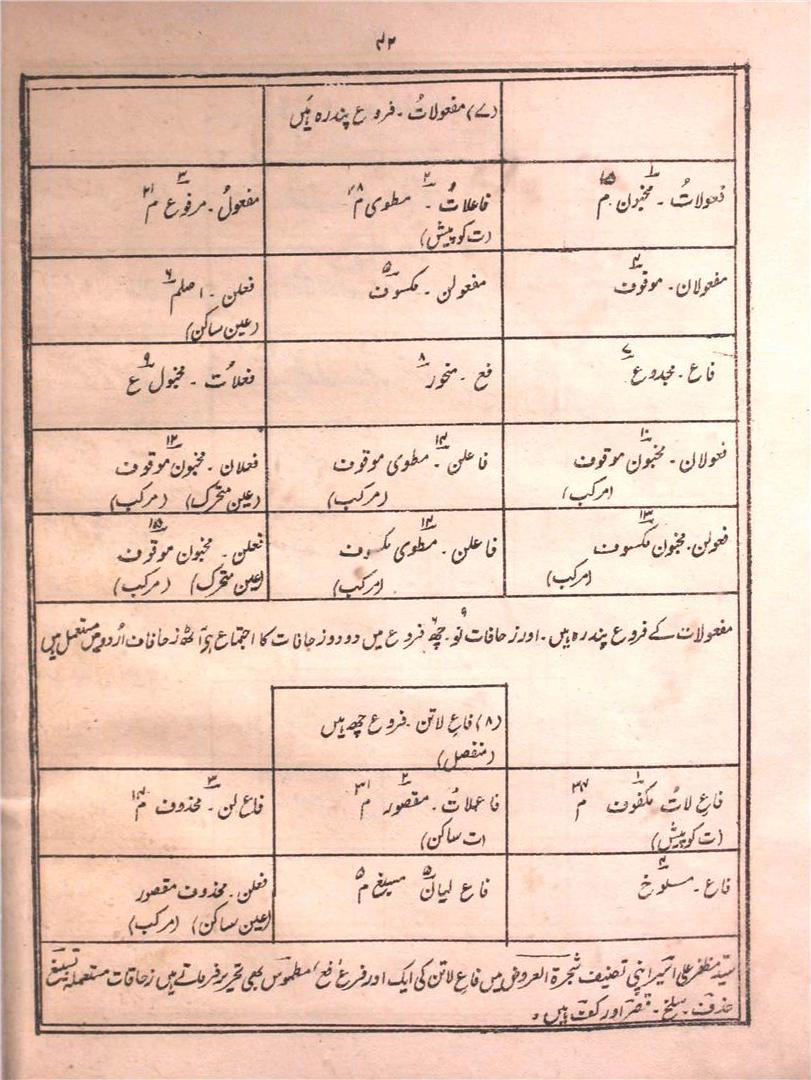 ۴۲
(۷) مفعولاتُ ۔ فروع پندرہ ہیں
۱ فعولاتُ ۔ مخبون م ۱۵
۲ فاعلاتُ ۔ مطوی م ۲۸
(ت کو پیش)
۳ مفعولُ ۔ مرفوع م ۲۱
۴ مفعولان ۔ موقوف
۵ مفعولن ۔ مکسوف
۶ فعلن ۔ اصلم
(عین ساکن)
۷ فاع ۔ مجدوع
۸ فع ۔ منحور
۹ فعلاتُ ۔ مخبول ع
۱۰ فعولان ۔ مخبون موقوف
(مرکب)
فاعلن ۔ مطوی موقوف
(مرکب)
۱۲ فعلان ۔ مخبون موقوف
(عین متحرک) (مرکب)
۱۳ فعولن ۔ مخبون مکسوف
(مرکب)
۱۴ فاعلن ۔ مطوی مکسوف
(مرکب)
۱۵ فعلن ۔ مخبون موقوف
(عین متحرک) (مرکب)
مفعولات کے فروع پندرہ ہیں ۔ اور زحافات نو ۹ ۔ چھ ۶ فروع میں دو دو زحافات کا اجتماع ہے آٹھ زحافات اُردو میں مستعمل ہیں
(۸) فاعِ لاتن ۔ فروع چھ ہیں
(منفصل)
۱ فاعِ لاتُ مکفوف م ۳۷
(ت کو پیش)
۲ فاعلاتْ ۔ مقصور م ۳۱
(ت ساکن)
۳ فاع لن ۔ محذوف م ۱۴
۴ فاع ۔ مسلوخ
۵ فاع لیان مسبغ م ۵
فعلن ۔ محذوف مقصور
(عین ساکن) (مرکب)
سیّد مظفر علی اسیر اپنی تصنیف شجرۃ العروض میں فاع لاتن کی ایک اور فرع ’فع‘ مطموس بھی تحریر فرماتے ہیں زحافات مستعملہ تسبیغ
حذف ۔ سلخ ۔ قصر اور کف ہیں ۔